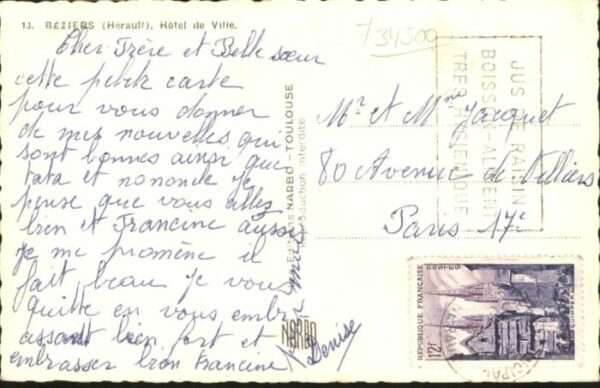 13. BÉZIERS (Hérault). Hôtel de Ville.
734500
Cher Frère et Belle sœur
cette petite carte
pour vous donner
de mes nouvelles qui
sont bonnes ainsi que
tata et nononde je
pense que vous allez
bien et Francine aussi
je me promène il
fait beau je vous
quitte en vous embr
assant bien fort et
embrasser bien Francine
Denise
NARBO - TOULOUSE
Reproduction interdite
NARBO
JUS DE RAISIN
BOISSON-ALIMENT
TRES ENERGETIQUE
Mr et Mme Jacquet
80 Avenue de Villiers
Paris 17e
POSTES
REPUBLIQUE FRANÇAISE
QUIMPER
12f